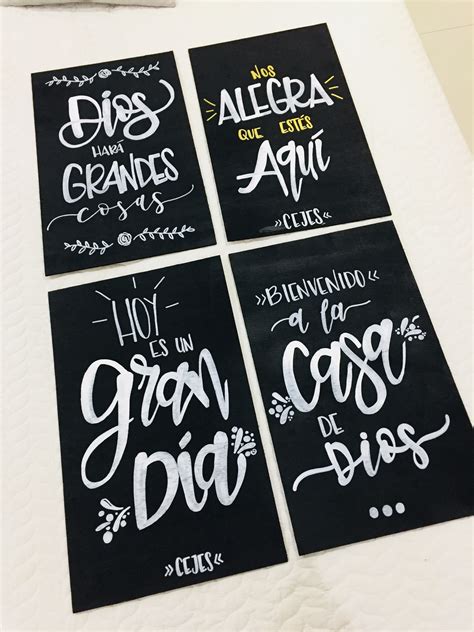 Dios
HARÁ
GRANDES
cosas
NOS
ALEGRA
QUE ESTÉS
Aquí
»CEJES«
HOY
ES UN
Gran
Día
»CEJES«
»BIENVENIDO«
a la
Casa
DE
Dios